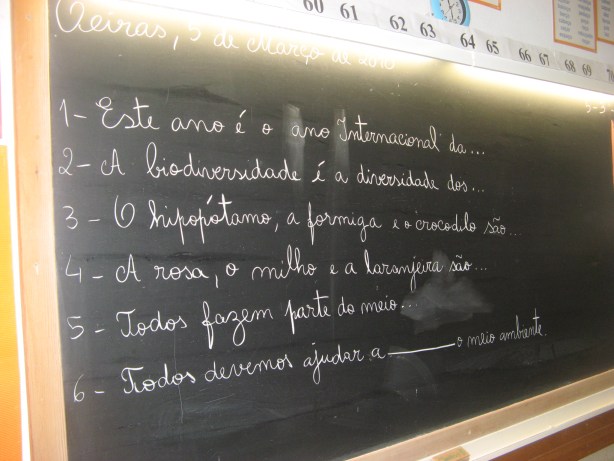 60 61 62 63 64 65 66 67 68 69 70
Oeiras, 5 de Março de 2010
1- Este ano é o ano Internacional da...
2- A biodiversidade é a diversidade dos...
3 - O hipopótamo, a formiga e o crocodilo são...
4 - A rosa, o milho e a laranjeira são...
5 - Todos fazem parte do meio...
6 - Todos devemos ajudar a ______ o meio ambiente.